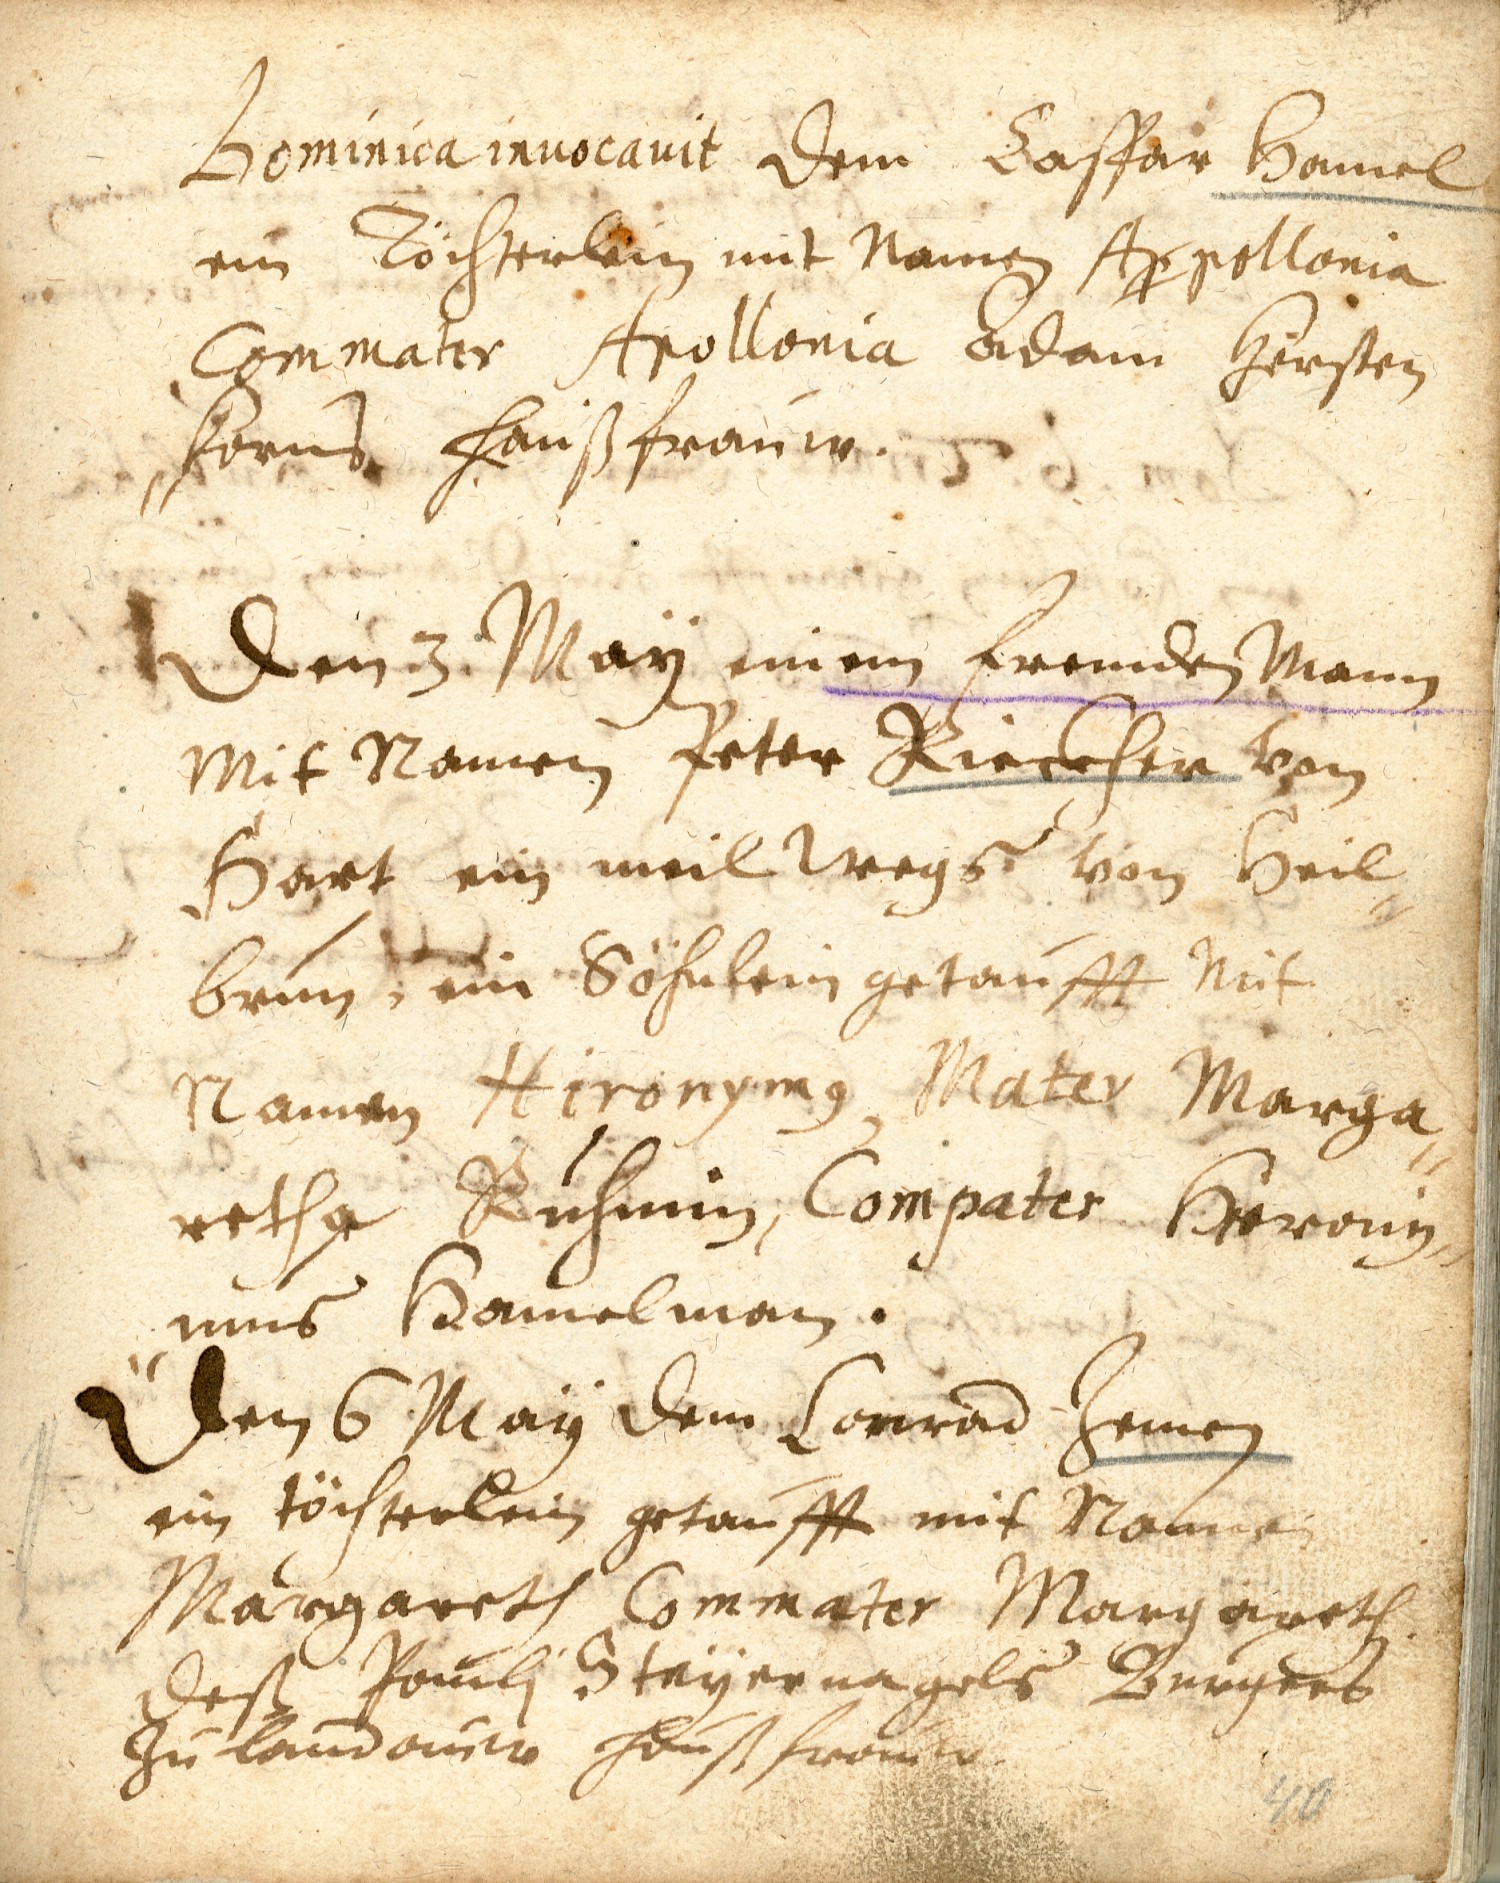 Dominica inuocauit dem Casspar Hamel
ein Töchterlein mit Namen Appollonia
Commater Apollonia Adam Gersten
korns haußfrauw.
Den 3. May einem frembden Mann
Mit Namen Peter Kirscher von
Hart ein meil wegs von Heil-
brun, ein Söhnlein getaufft Mit
Namen Hironymg, Mater Marga-
retha Kuhnin, Compater Hierony-
mus Hamelman.
Den 6 May dem Conrad Zemen
ein töchterlein getaufft mit Namen
Margareth Commater Margareth
deß Pauli Steyernagels Burgers
zu landauw haußfrauw.
40